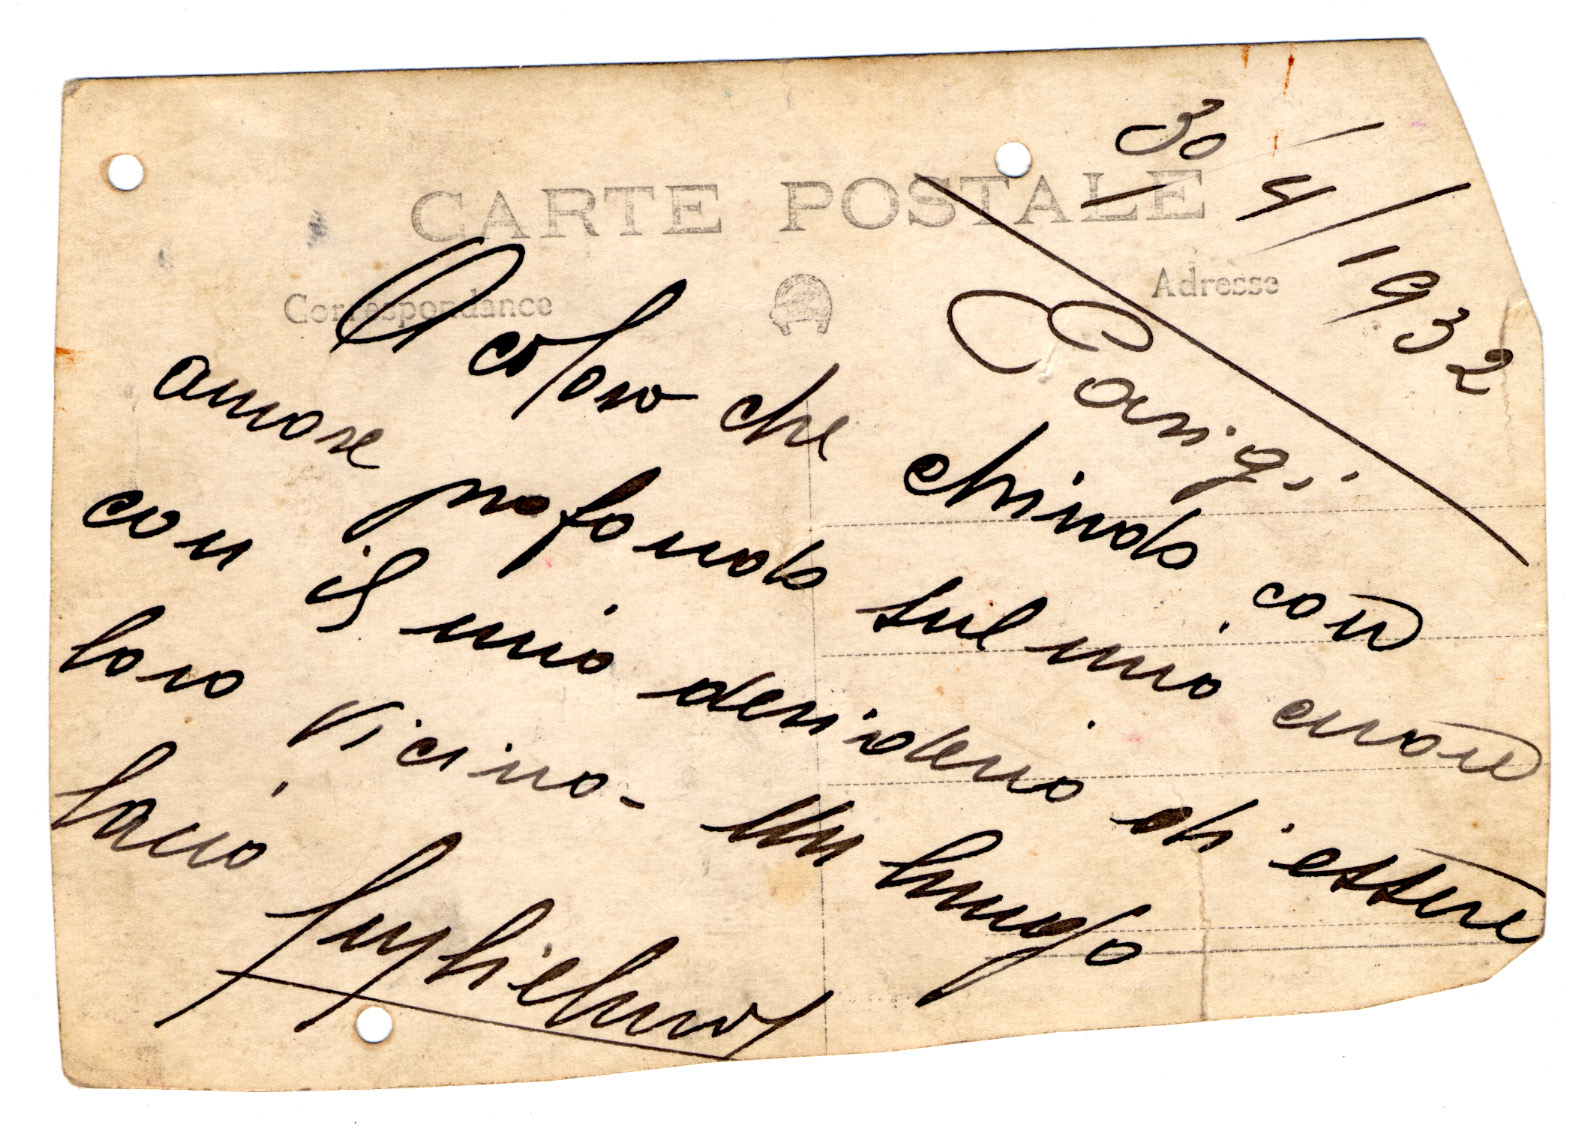 30/4/1932
CARTE POSTALE
Correspondance
Adresse
Parigi.
A coloro che chiudo con
amore profondo sul mio cuore
con il mio desiderio di essere
loro vicino - Un lungo
bacio
Guglielmo